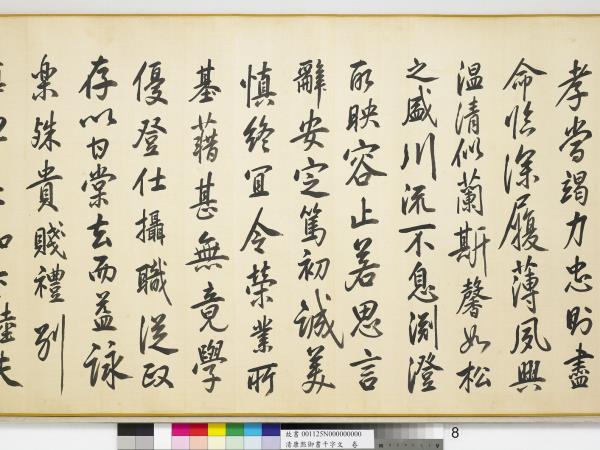 孝當竭力忠則盡
命臨深履薄夙興
温清似蘭斯馨如松
之盛川流不息渊澄
取映容止若思言
辭安定篤初誠美
慎終宜令榮業所
基藉甚無竟學
優登仕攝職從政
存以甘棠去而益詠
樂殊貴賤禮別
和下睦夫
故書 001125N000000000
清康熙御書千字文 卷
8